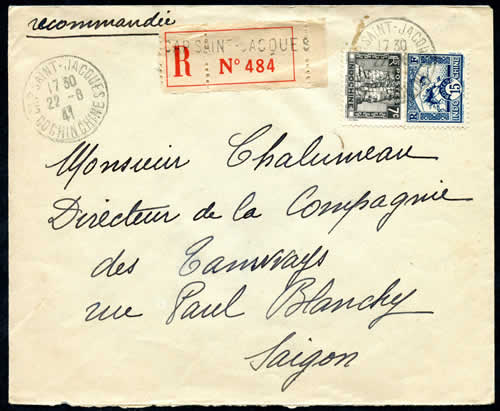 recommandée
CAP SAINT-JACQUES
R Nº 484
CAP SAINT-JACQUES
17 30
22 -8
41
COCHINCHINE
SAINT-JACQUES
17 30
INDOCHINE
7c
INDOCHINE
15
Monsieur Chalumeau
Directeur de la Compagnie
des Tamways
rue Paul Blanchy
Saigon